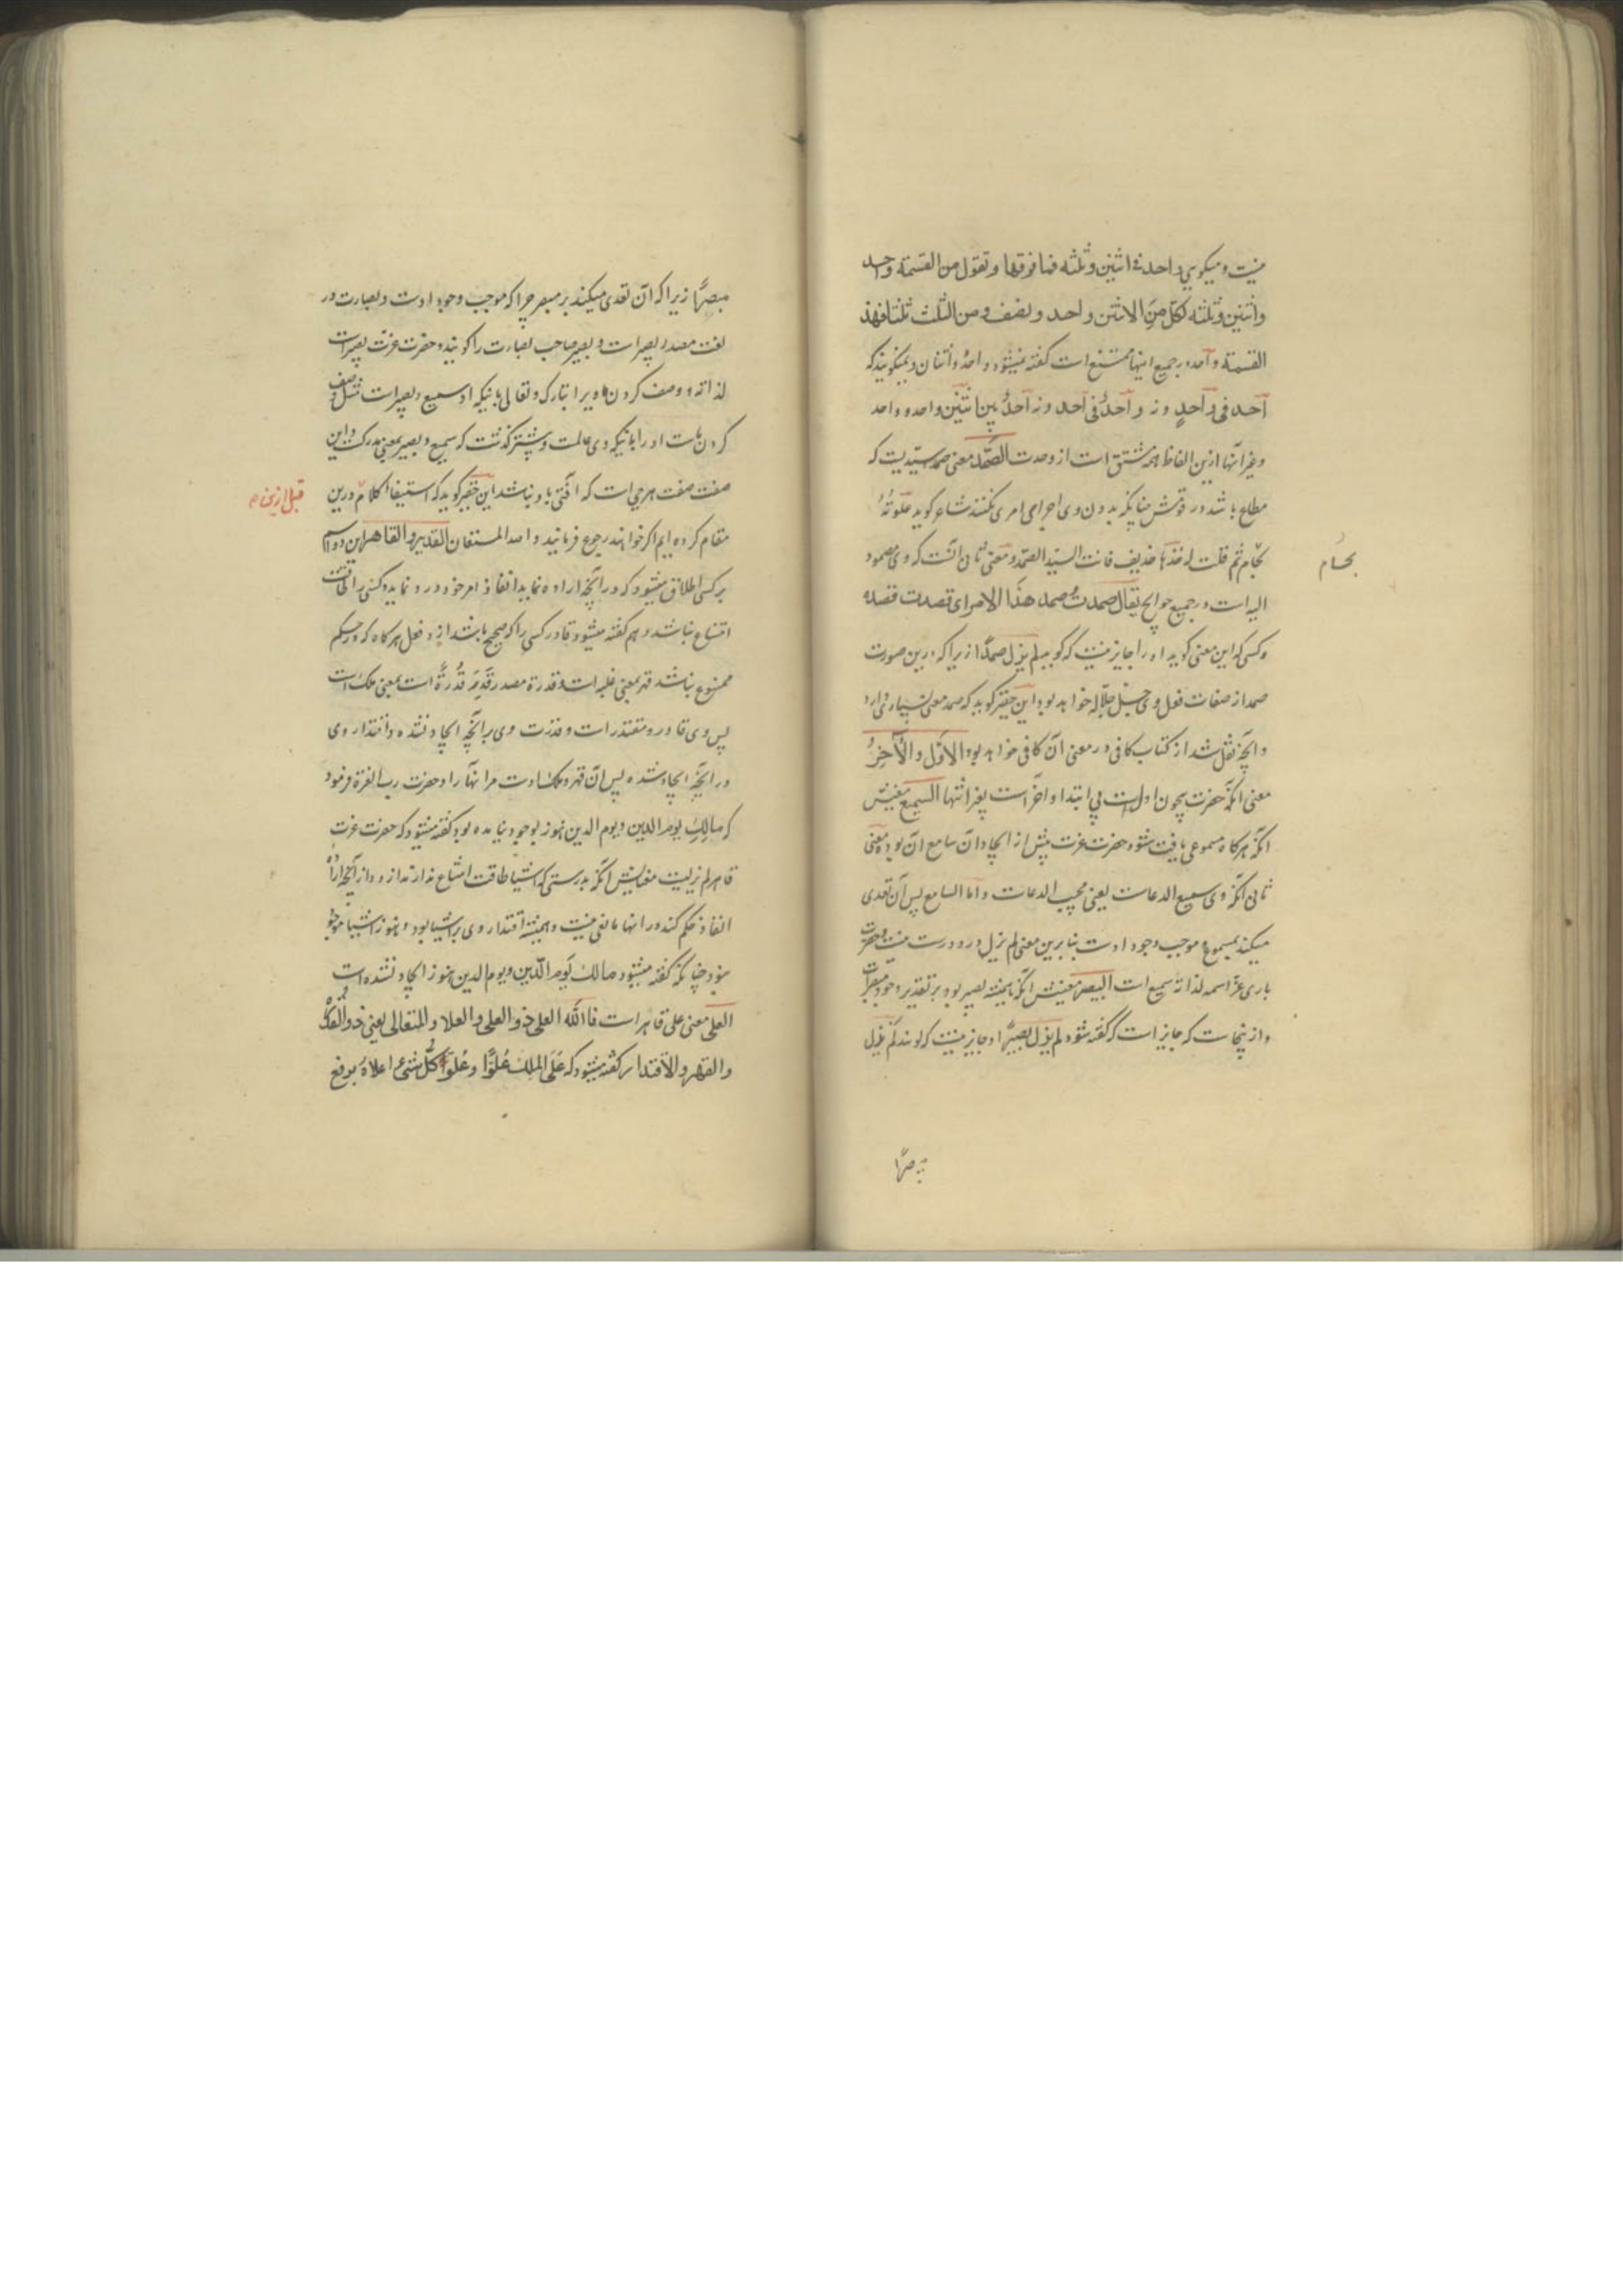 نیست و میکویی واحد فی اثنین و ثلثه فما فوقها و تقول من القسمة واحد
واثنین و ثلثه لکل من الاثنین واحد و نصف و من الثلث ثلثا فهذه
القسمة و آحد در جمیع اینها ممتنع است کفته نمیشود و احدٌ و اثنان و نمیکویند که
آحد فی واحدٍ و نه و آحدٌ فی آحد و نه آحدٌ بین اثنین و احد و واحد
و غیر آنها ازین الفاظ همه مشتق است از وحدت الصّمد معنی صمد سیّدیست که
مطاع باشد در قومش چنانکه بدون وی اجرای امری نکنند شاعر کوید علوته
بحسام ثم قلت له خذها حذیف فانت السیّد الصمد و معنی ثانی آنست که وی مصمود
الیه است در جمیع حوایج یقال صمدتُ صمد هذا الامر ای قصدت قصده
و کسی که این معنی کوید او را جایز نیست که کوید لم یزل صمدًا زیرا که درین صورت
صمد از صفات فعل وی جلّ جلاله خواهد بود این حقیر کوید که صمد معنی بسیاری دارد
و آنچه نقل شد از کتاب کافی در معنی آن کافی خواهد بود الاوّل و الآخرُ
معنی آنکه حضرت بیچون اول است بی ابتدا و آخر است بغیر انتها السمیع معنیش
آنکه هرکاه مسموعی یافت شود حضرت عزت پیش از ایجاد آن سامع آن بوده معنی
ثانی آنکه وی سمیع الدعاست یعنی مجیب الدعاست و امّا السامع پس آن تعدی
میکند بمسموع و موجب وجود اوست بنا برین معنی لم یزل درو درست نیست و حضرت
باری عزّ اسمه لذاته سمیع است البصیر معنیش آنکه همیشه بصیر بود بر تقدیر وجود مبصرات
و از ینجاست که جایز است که کفته شود لم یزل بصیرًا و جایز نیست که کویند لم یزل
مبصرًا
بحسام
مبصرًا زیرا که آن تعدی میکند بر مبصر چرا که موجب وجود اوست و بصارت در
لغت مصدر بصیر است و بصیر صاحب بصارت را کویند و حضرت عزت بصیر است
لذاته و وصف کردن ما ویرا تبارک و تعالی باینکه او سمیع و بصیر است مثل وصف
کردن ماست او را باینکه وی عالمست و پیشتر کذشت که سمیع و بصیر بمعنی مدرکست و این
صفت صفت هر حی است که آفتی باو نباشد این حقیر کوید که استیفاء کلام درین
مقام کرده ایم اکر خواهند رجوع فرمایند و الله المستعان القدیر و القاهر این دو اسم
بر کسی اطلاق میشود که در آنچه اراده نماید انفاذ امر خود درو نماید و کسی را طاقت
امتناع نباشد و هم کفته میشود قادر کسی را که صحیح باشد ازو فعل هر کاه که در حکم
ممنوع نباشد قهر بمعنی غلبه است و قدرة مصدر قَدَرَ قُدرةً است بمعنی ملک است
پس وی قادر و مقتدر است و قدرت وی بر آنچه ایجاد نشده و اقتدار وی
در آنچه ایجاد شده پس آن قهر و ملک اوست مر آنها را و حضرت رب العزة فرمود
که مالِکِ یوم الدین و یوم الدین هنوز بوجود نیامده بود کفته میشود که حضرت عزت
قاهر لم یزلیست معنایش آنکه بدرستی که اشیا طاقت امتناع ندارند ازو و از آنچه اراده
انفاذ حکم کند در آنها مانعی نیست و همیشه اقتدار وی بر اشیا بود و هنوز اشیا موجود
نبود چنانکه کفته میشود مالک یوم الدّین و یوم الدین هنوز ایجاد نشده است
العلی معنی علی قاهر است فاالله العلی ذو العلی و العلا و المتعالی یعنی ذو القدرة
و القهر و الاقتدار کفته میشود که عَلَی الملِک عُلوًّا و عُلوّ کلُّ شئ اعلاهُ برفع
قبل ازین